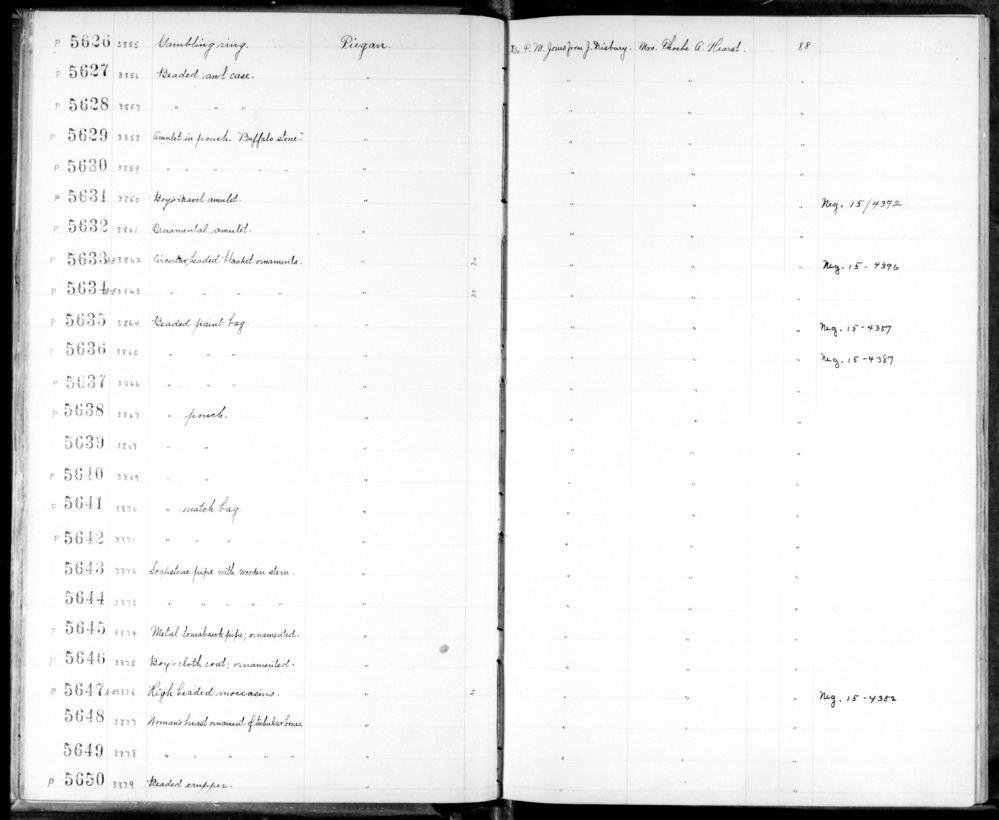 P 5626 3855 Gambling ring. Piegan. Dr. P. M. Jones from J. Disbury. Mrs. Phoebe A. Hearst. 88
P 5627 3856 Beaded awl case. " " " "
P 5628 3857 " " " " " " "
P 5629 3858 Amulet in pouch. "Buffalo stone." " " " "
P 5630 3859 " " " " " " " " "
P 5631 3860 Boy's travel amulet. " " " " Neg. 15/4372
P 5632 3861 Ornamental amulet. " " " "
P 5633 3862 Circular, beaded blanket ornaments. " 2 " " " Neg. 15-4396
P 5634 3863 " " " " " 2 " " "
P 5635 3864 Beaded paint bag. " " " " Neg. 15-4387
P 5636 3865 " " " " " " " Neg. 15-4387
P 5637 3866 " " " " " " "
P 5638 3867 " pouch. " " " "
5639 3868 " " " " " "
P 5640 3869 " " " " " "
P 5641 3870 " match bag. " " " "
P 5642 3871 " " " " " " "
5643 3872 Soapstone pipe with wooden stem. " " " "
5644 3873 " " " " " " " " "
P 5645 3874 Metal tomahawk pipe; ornamented. " " " "
P 5646 3875 Boy's cloth coat; ornamented. " " " "
P 5647 3876 High beaded moccasins. " 2 " " " Neg. 15-4382
5648 3877 Woman's breast ornament of tubular bones. " " " "
5649 3878 " " " " " " " " "
P 5650 3879 Beaded crupper. " " " "